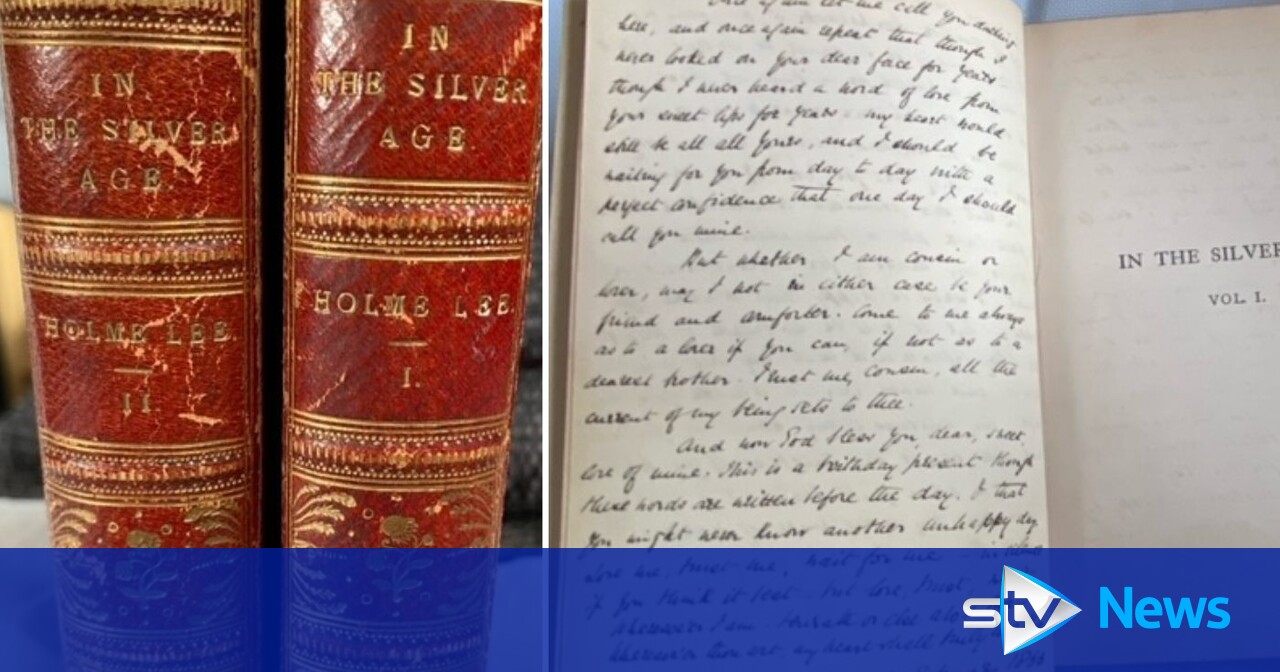 IN
THE SILVER
AGE.
HOLME LEE.
II
IN
THE SILVER
AGE.
HOLME LEE.
I.
Once again let me call you darling
here, and once again repeat that though I
never looked on your dear face for years
though I never heard a word of love from
your sweet lips for years, my heart would
still be all all yours, and I should be
waiting for you from day to day with a
perfect confidence that one day I should
call you mine.
But whether I am cousin or
lover, may I not in either case be your
friend and comforter. Come to me always
as to a lover if you can, if not as to a
dearest brother. Trust me, cousin, all the
current of my being sets to thee.
And now God bless you dear, sweet
love of mine. This is a birthday present though
these words are written before the day. O that
you might never know another unhappy day
love me, trust me, wait for me
if you think it best, but love, trust
wherever I am
my heart shall
IN THE SILVER
VOL. I.
stv News